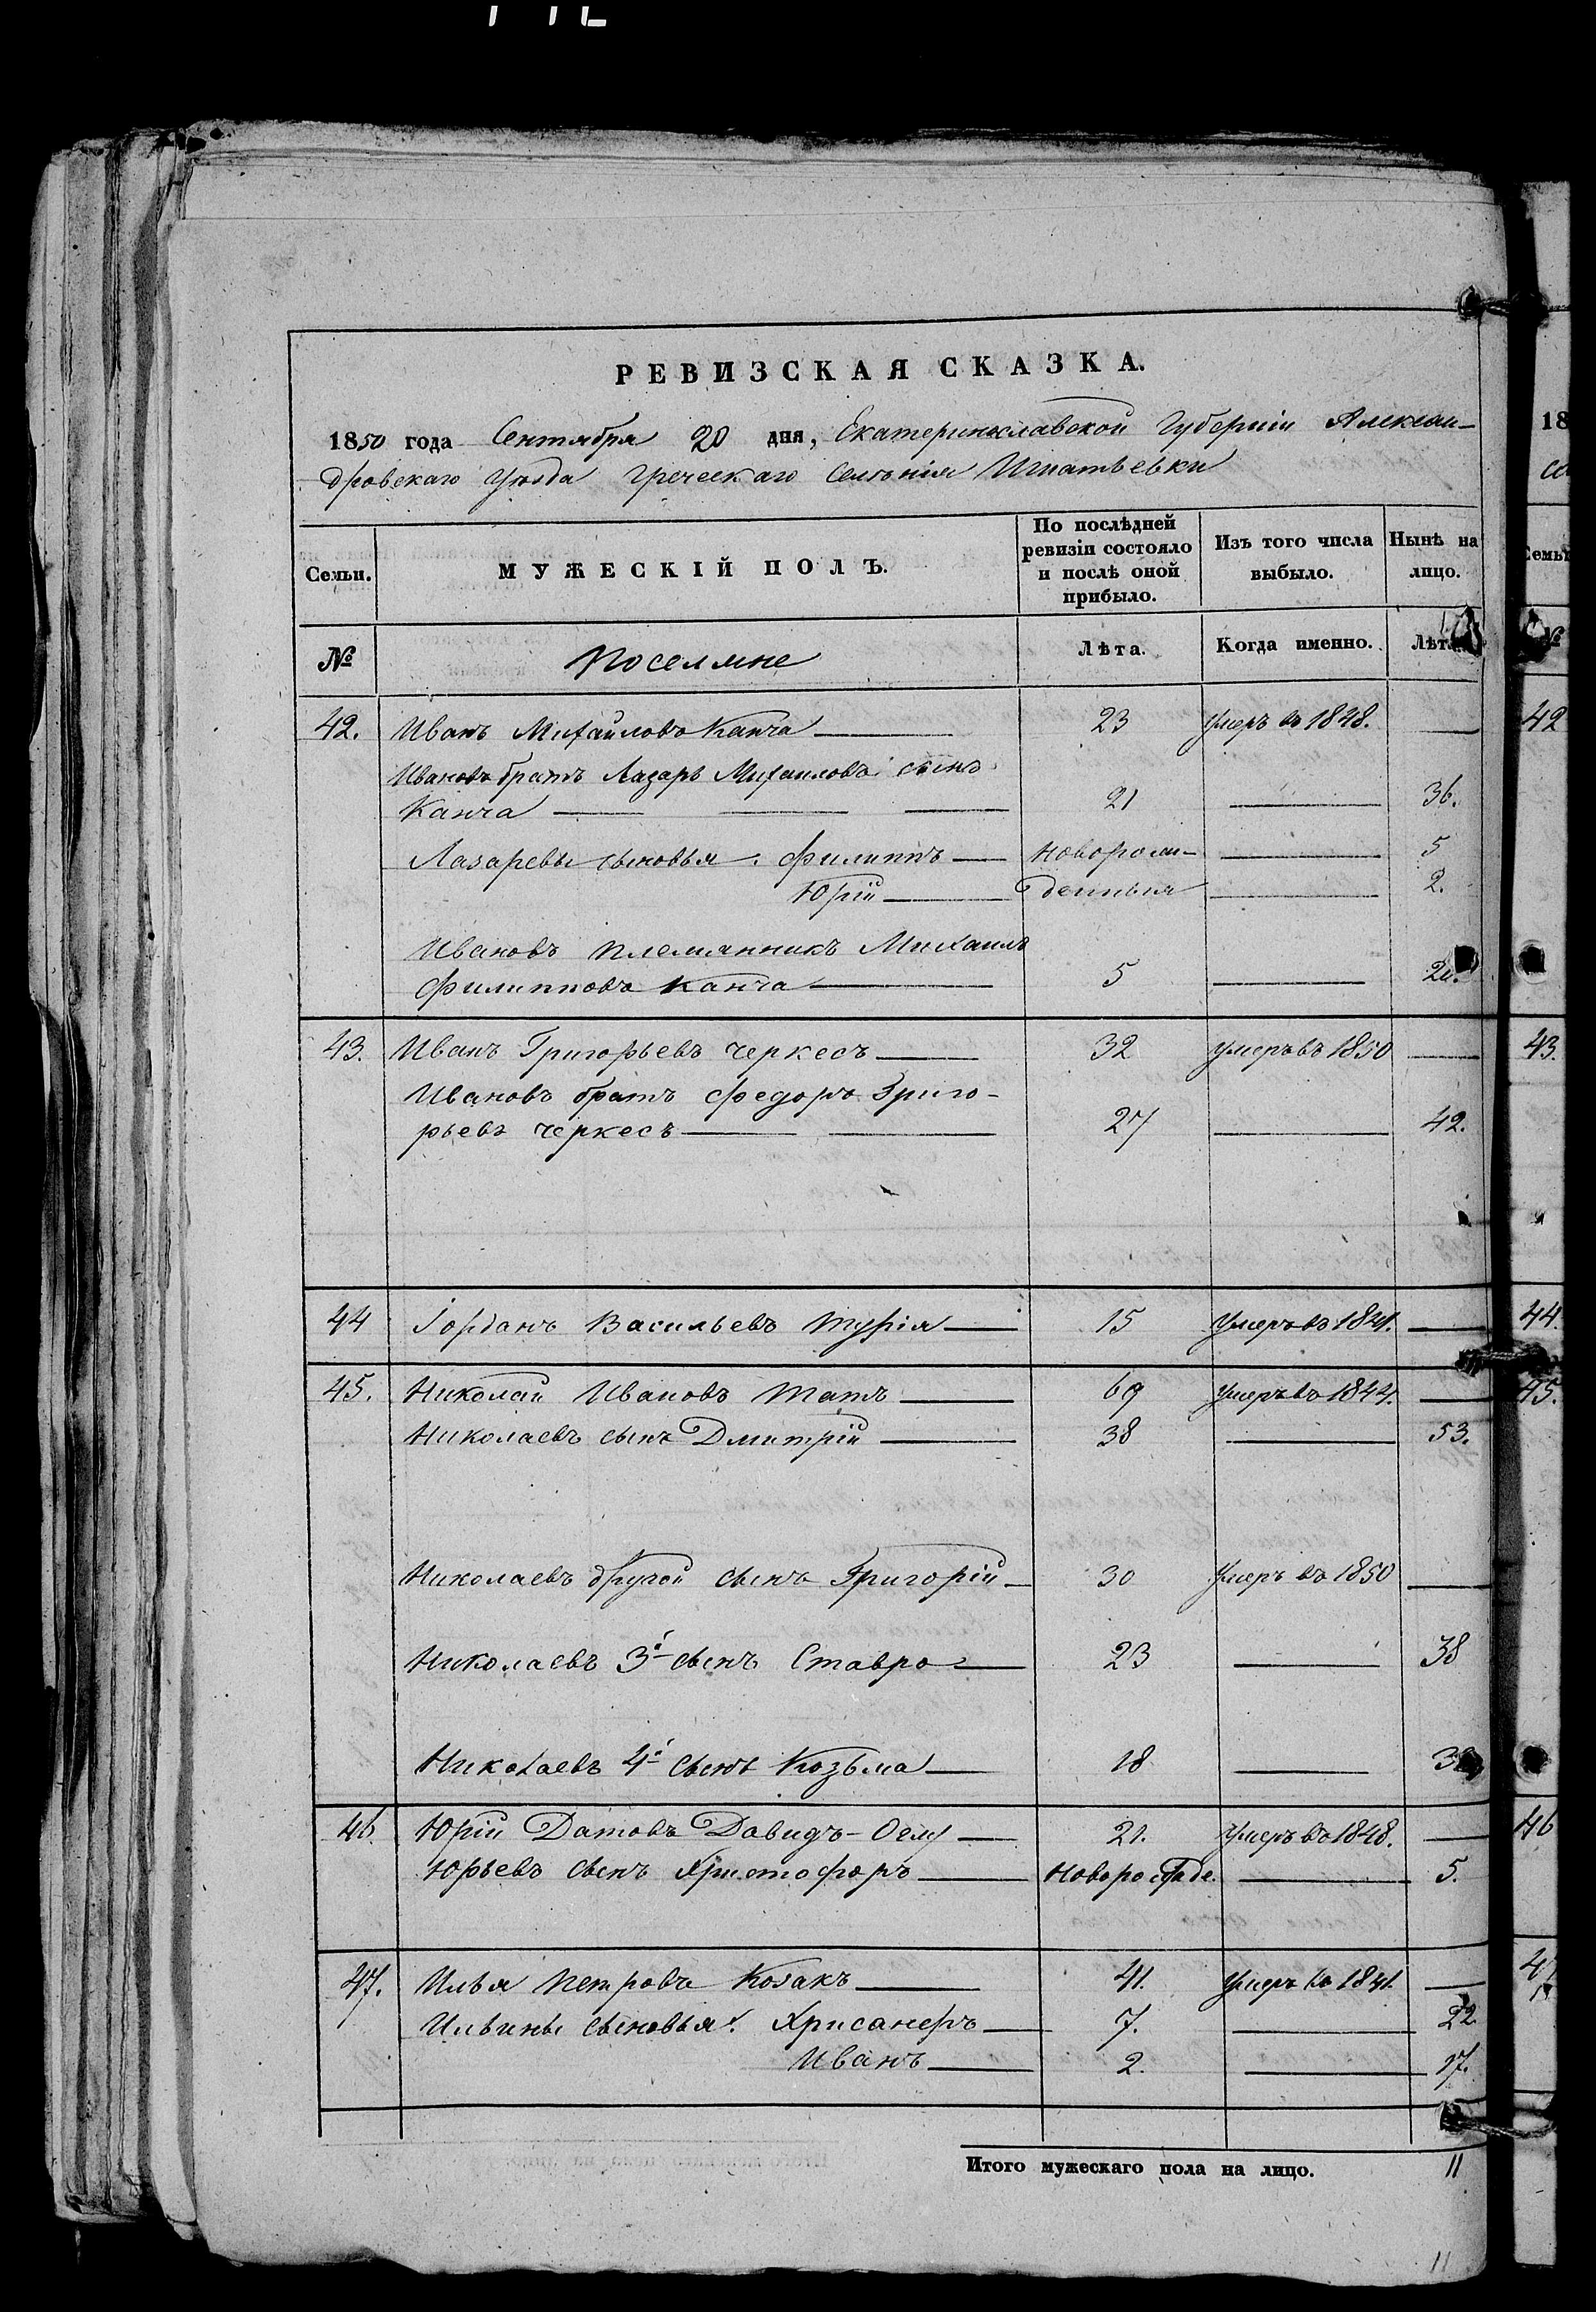 РЕВИЗСКАЯ СКАЗКА.
1850 года Сентября 20 дня, Екатеринославской Губерніи Алексан-
дровскаго Уѣзда Греческаго Селенія Игнатьевки
Семьи. МУЖЕСКІЙ ПОЛЪ. По послѣдней ревизіи состояло и послѣ оной прибыло. Изъ того числа выбыло. Нынѣ на лицо.
№ Поселяне Лѣта. Когда именно. Лѣта
42. Иванъ Михайловъ Канча 23 умеръ въ 1848.
Ивановъ братъ Лазарь Михайловъ сынъ
Канча 21 36.
Лазаревы сыновья. Филиппъ Новорож- 5
Юрій денныя 2.
Ивановъ племянникъ Михаилъ
Филипповъ Канча 5
43. Иванъ Григорьевъ Черкесъ 32 умеръ въ 1850
Ивановъ братъ Федоръ Григо-
рьевъ Черкесъ 27 42.
44 Іорданъ Васильевъ Турія 15 умеръ въ 1841.
45. Николай Ивановъ Татъ 69 умеръ въ 1844.
Николаевъ сынъ Дмитрій 38 53.
Николаевъ другой сынъ Григорій 30 умеръ въ 1850
Николаевъ 3й сынъ Ставро 23 38
Николаевъ 4й сынъ Козьма 18
46 Юрій Датовъ Давидъ-Оглу 21. умеръ въ 1848.
Юрьевъ сынъ Христофоръ Новорожде. 5.
47. Илья Петровъ Козакъ 41. умеръ въ 1841.
Ильины сыновья: Хрисанеръ 7. 22.
Иванъ 2. 17.
Итого мужескаго пола на лицо. 11
11
18
42
43.
44.
45.
46